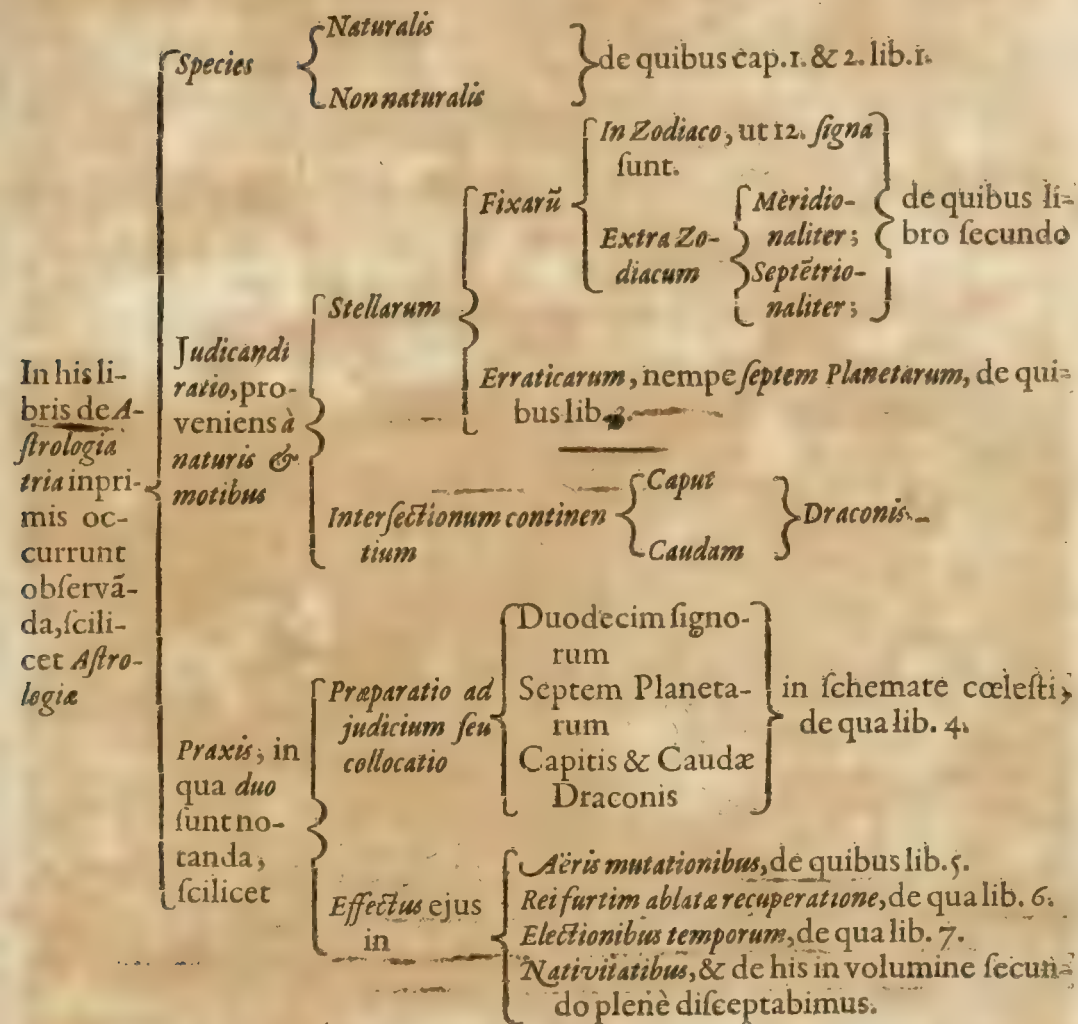 In his li-
bris de A-
ſtrologia
tria inpri-
mis oc-
currunt
obſervã-
da, ſcili-
cet Aſtro-
logiæ
Species
Naturalis
Non naturalis
de quibus cap. 1. & 2. lib. 1.
Judicandi
ratio, pro-
veniens à
naturis &
motibus
Stellarum
Fixarũ
In Zodiaco, ut 12. ſigna
ſunt.
Extra Zo-
diacum
Meridio-
naliter;
Septẽtrio-
naliter;
de quibus li-
bro ſecundo
Erraticarum, nempe ſeptem Planetarum, de qui-
bus lib.
Interſectionum continen
tium
Caput
Caudam
Draconis.
Praxis, in
qua duo
ſunt no-
tanda,
ſcilicet
Præparatio ad
judicium ſeu
collocatio
Duodecim ſigno-
rum
Septem Planeta-
rum
Capitis & Caudæ
Draconis
in ſchemate cœleſti,
de qua lib. 4.
Effectus ejus
in
Aëris mutationibus, de quibus lib. 5.
Rei furtim ablatæ recuperatione, de qua lib. 6.
Electionibus temporum, de qua lib. 7.
Nativitatibus, & de his in volumine ſecun-
do plenè diſceptabimus.